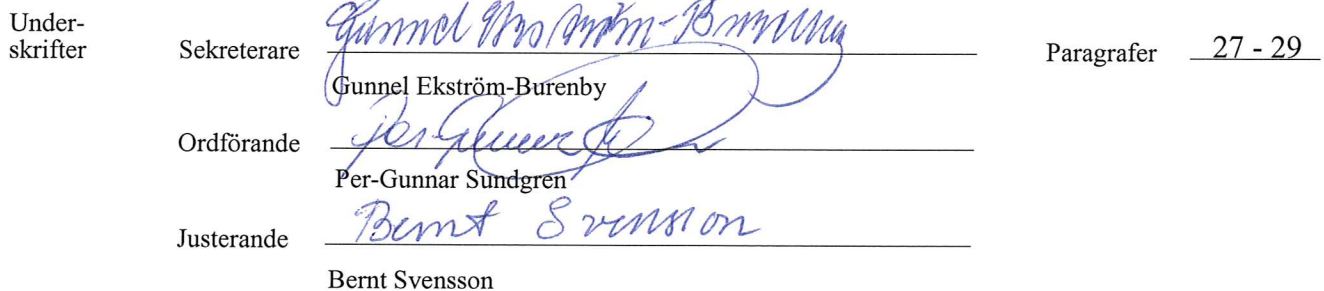 Under-
skrifter
Sekreterare Gunnel Ekström-Burenby Paragrafer 27 - 29
Gunnel Ekström-Burenby
Ordförande Per-Gunnar
Per-Gunnar Sundgren
Justerande Bernt Svensson
Bernt Svensson